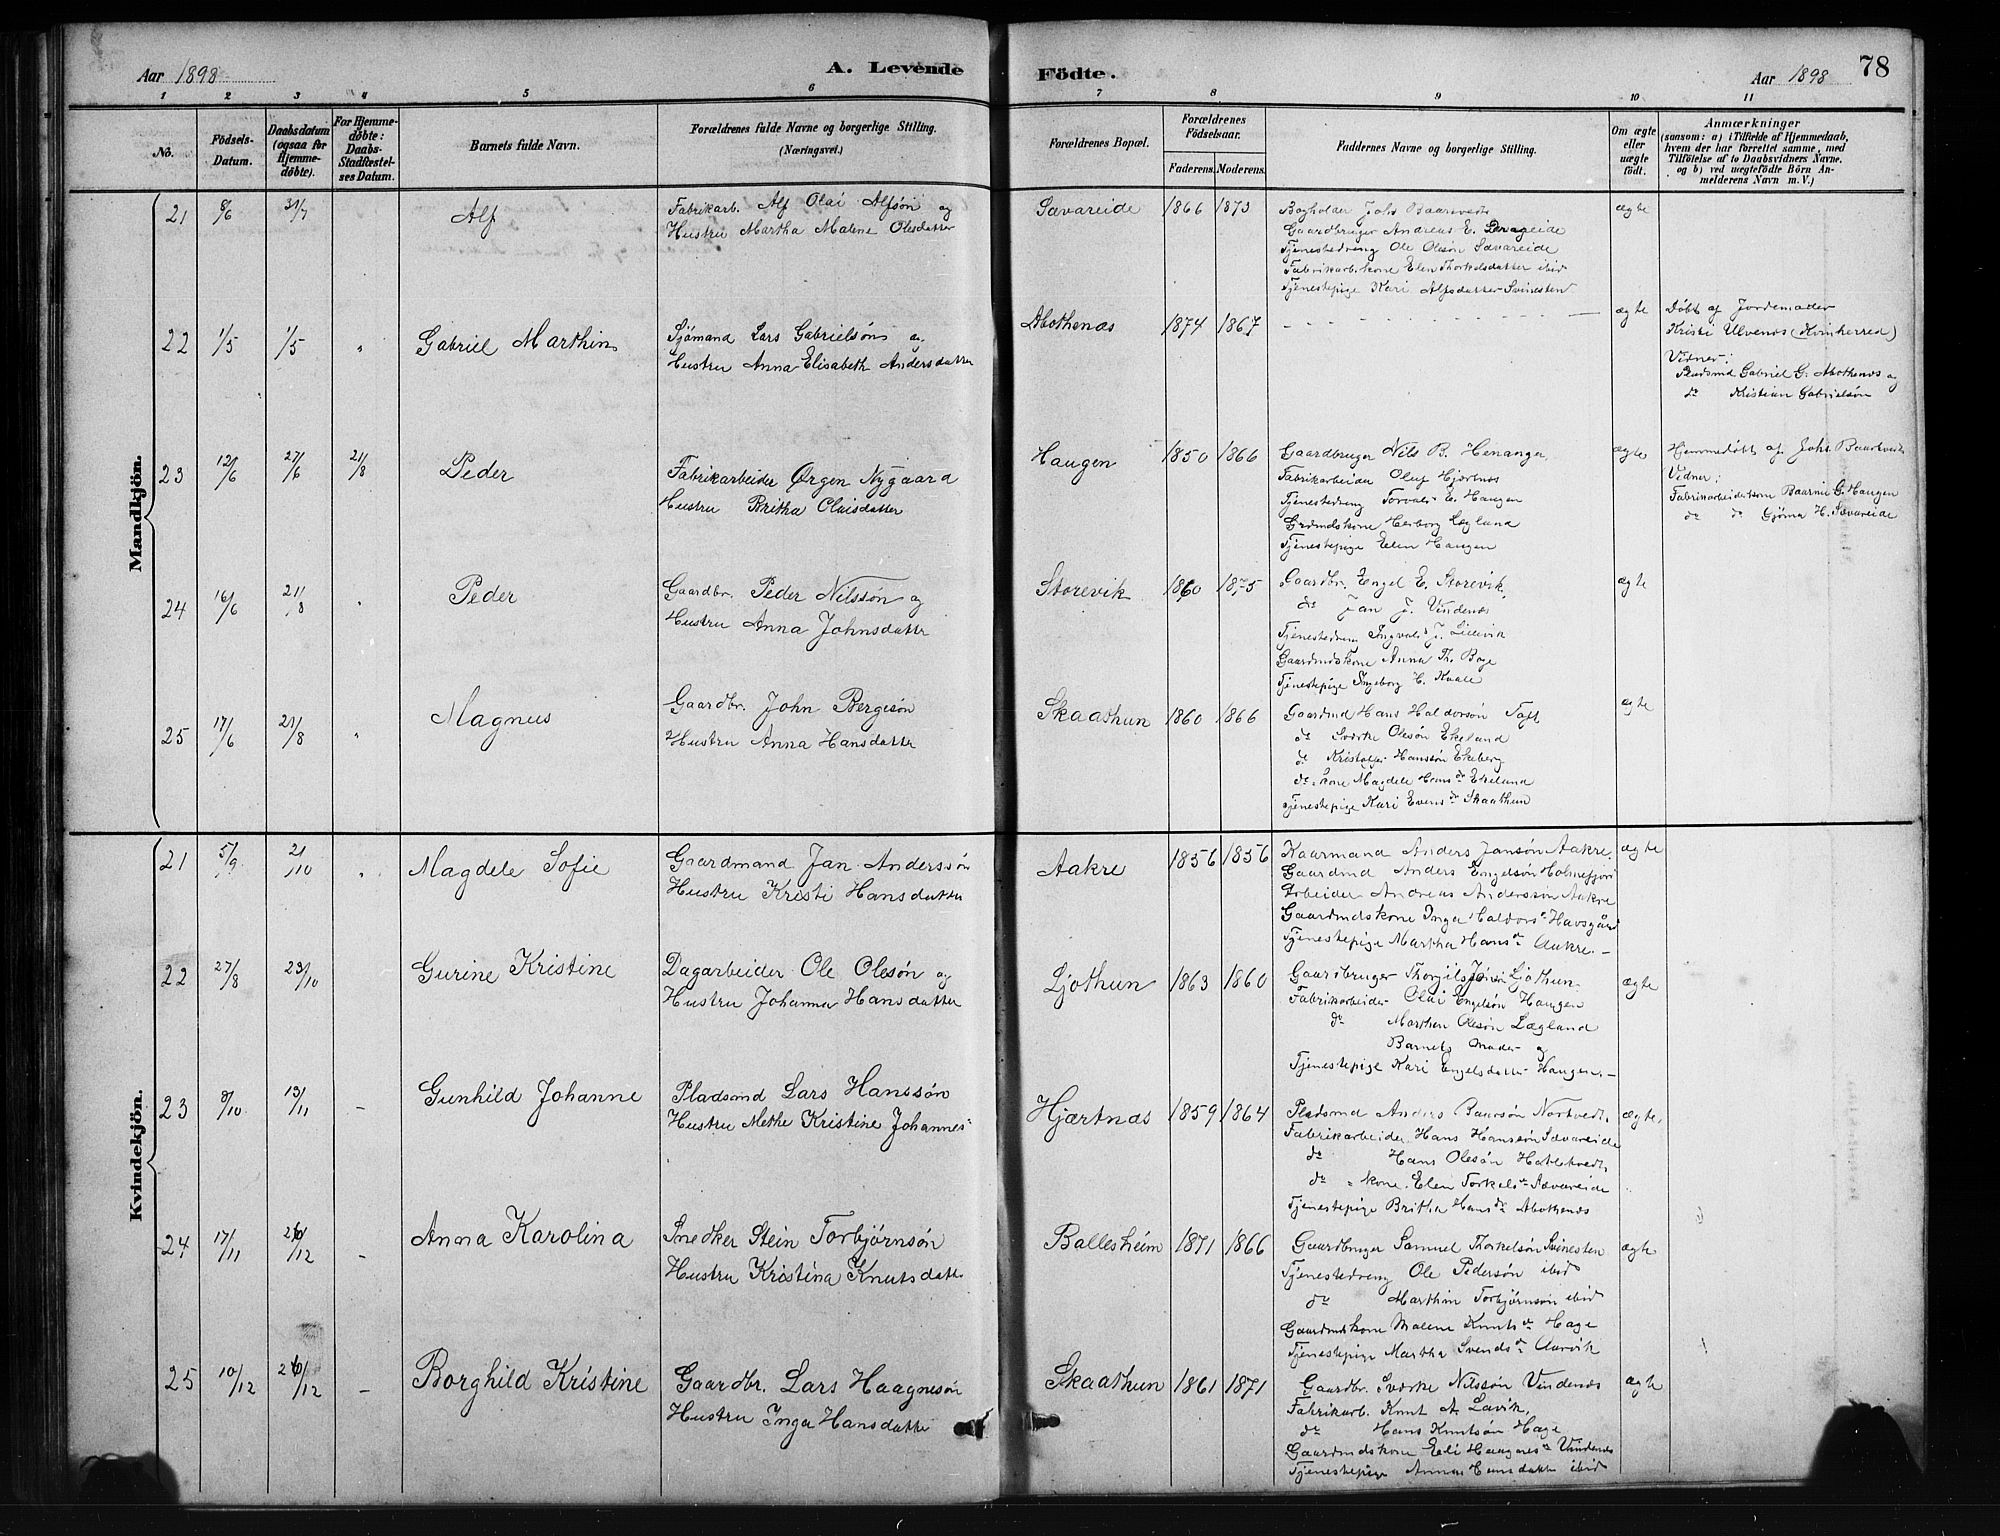 Aar 1898
A. Levende
Födte.
Aar 1898
78
1 2 3 4 5 6 7 8 9 10 11
No.
Födsels-
Datum.
Daabsdatum
(ogsaa for
Hjemme-
döbte).
For Hjemme-
döbte:
Daabs-
Stadfæstel-
ses Datum.
Barnets fulde Navn.
Forældrenes fulde Navne og borgerlige Stilling.
(Næringsvei.)
Forældrenes Bopæl.
Forældrenes
Födselsaar.
Faderens. Moderens.
Faddernes Navne og borgerlige Stilling.
Om ægte
eller
uægte
födt.
Anmærkninger
(saasom: a) i Tilfælde af Hjemmedaab,
hvem der har forrettet samme, med
Tilföielse af to Daabsvidners Navne.
og b) ved uægtefödte Börn An-
melderens Navn m. V.)
Mandkjön.
21 8/6 31/7 Alf
Fabrikarb. Alf Olai Alfsön og
Hustru Martha Malene Olesdatter
Sævareide 1866 1873
Bogholder Johs Baarsvedt
Gaardbruger Andreas E.
Tjenestedreng Ole Olesön Sævareide
Fabrikarb.kone Elen Thorkelsdatter ibid
Tjenestepige Kari Alfsdatter Svinesten
ægte
22 1/5 1/5 " Gabriel Marthin
Sjömand Lars Gabrielsön og
Hustru Anna Elisabeth Andersdatter
Abothenæs 1874 1867
ægte
Döbt af Jordemoder
Kristi Ulvenæs (Kvinherred)
Vidner:
Pladsmd Gabriel G. Abothenæs og
do Kristian Gabrielsön
23 12/6 27/6 21/8 Peder
Fabrikarbeider Ørgen Nygaard
Hustru Britha Olaisdatter
Haugen 1850 1866
Gaardbruger Nils B. Henanger
Fabrikarbeider Oluf Hjortnæs
Tjenestedreng Torvald E. Haugen
Grdmdskone Herborg Lægland
Tjenestepige Elen Haugen
ægte
Hjemmedöbt af Johs. Baarsvedt
Vidner:
Fabrikarbeiderkone Baarni G. Haugen
do do Gjöma H. Sævareide
24 16/6 21/8 " Peder
Gaardbr. Peder Nilssön og
Hustru Anna Johnsdatter
Storevik 1860 1875
Gaardbr. Engel E. Storevik
do Jan J. Vindenæs
Tjenestedreng Ingvald J. Lillevik
Gaardmdskone Anna Th. Boge
Tjenestepige Ingeborg H. Kvale
ægte
25 17/6 21/8 " Magnus
Gaardbr. John Bergesön
Hustru Anna Hansdatter
Skaathun 1860 1866
Gaardmd Hans Haldorsön Toft
do Sverke Olesön Ekeland
do Kristofer Hanssön Ekeberg
do kone Magdele Hansdr Ekeland
Tjenestepige Kari Evensdr Skaathun
ægte
Kvindekjön.
21 5/9 2/10 " Magdele Sofie
Gaardmand Jan Anderssön
Hustru Kristi Hansdatter
Aakre 1856 1856
Kaarmand Anders Jansön Aakre.
Gaardmd Anders Engelsön Holmefjord
Arbeider Andreas Anderssön Aakre
Gaardmdskone Inga Haldorsdr Havsgård
Tjenestepige Martha Hansdr Aakre.–
ægte
22 27/8 23/10 Gurine Kristine
Dagarbeider Ole Olesön og
Hustru Johanna Hansdatter
Ljothun 1863 1860
Gaardbruger Thorgils Ljothun
Fabrikarbeider Olai Engelsön Haugen
do Marthin Olesön Lægland
Barnets Moder og
Tjenestepige Kari Engelsdatter Haugen.–
ægte
23 9/10 13/11 – Gunhild Johanne
Pladsmd Lars Hanssön
Hustru Methe Kristine Johannes"
Hjærtnæs 1859 1864
Pladsmd Anders Baarsön Nortvedt
Fabrikarbeider Hans Hanssön Sævareide
do Hans Olesön Hatletvedt
do " kone Elen Torkelsdr Sævareide
Tjenestepige Britha Hansdr Abothenæs
ægte.
24 17/11 26/12 – Anna Karolina
Snedker Stein Torbjørnsön
Hustru Kristina Knutsdatt.
Ballesheim 1871 1866
Gaardbruger Samuel Thorkelsön Svinesten
Tjenestedreng Ole Pedersön ibid
do Marthin Torbjörnsön ibid
Gaardmdskone Malene Knutsdr Hage
Tjenestepige Martha Svendsdr Aarvik
ægte
25 10/12 26/12 – Borghild Kristine
Gaardbr. Lars Haagnesön
Hustru Inga Hansdatter
Skaathun 1861 1871
Gaardbr. Sverke Nilssön Vindenæs
Fabrikarb. Knut A. Lavik
do Hans Knutsön Hage
Gaardmdskone Eli Haagnesdr Vindenæs
Tjenestepige Anna Hansdatter ibid
ægte